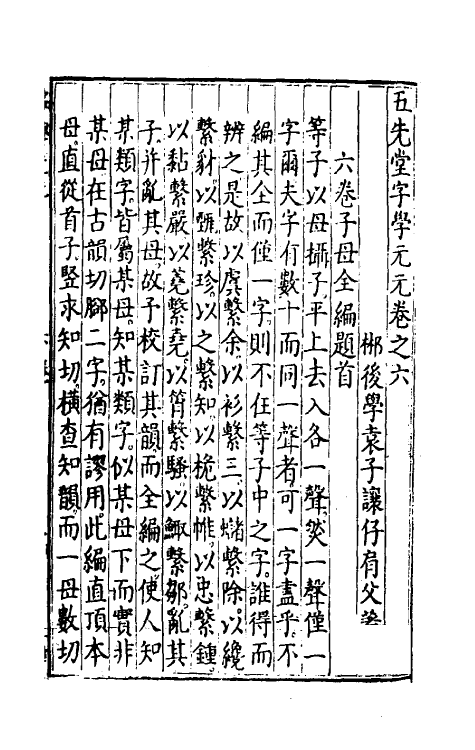 五先堂字學元元卷之六
郴後學袁子讓仔肩父著
六卷子母全編題首
等子以母攝子平上去入各一聲然一聲僅一
字爾夫字有數十而同一聲者可一字盡乎不
編其全而僅一字則不在等子中之字誰得而
辨之是故以虞繫余以衫繫三以躇繫除以纔
繫豺以繫珍以之繫知以桅繫帷以忠繫鍾
以黏繫嚴以蕘繫堯以筲繫騷以鯫繫鄒亂其
子并亂其母故予校訂其韻而全編之使人知
某類字皆屬某母知某類字似某母下而實非
某母在古韻切腳二字猶有謬用此編直頂本
母直從首子豎求知切橫查知韻而一母數切